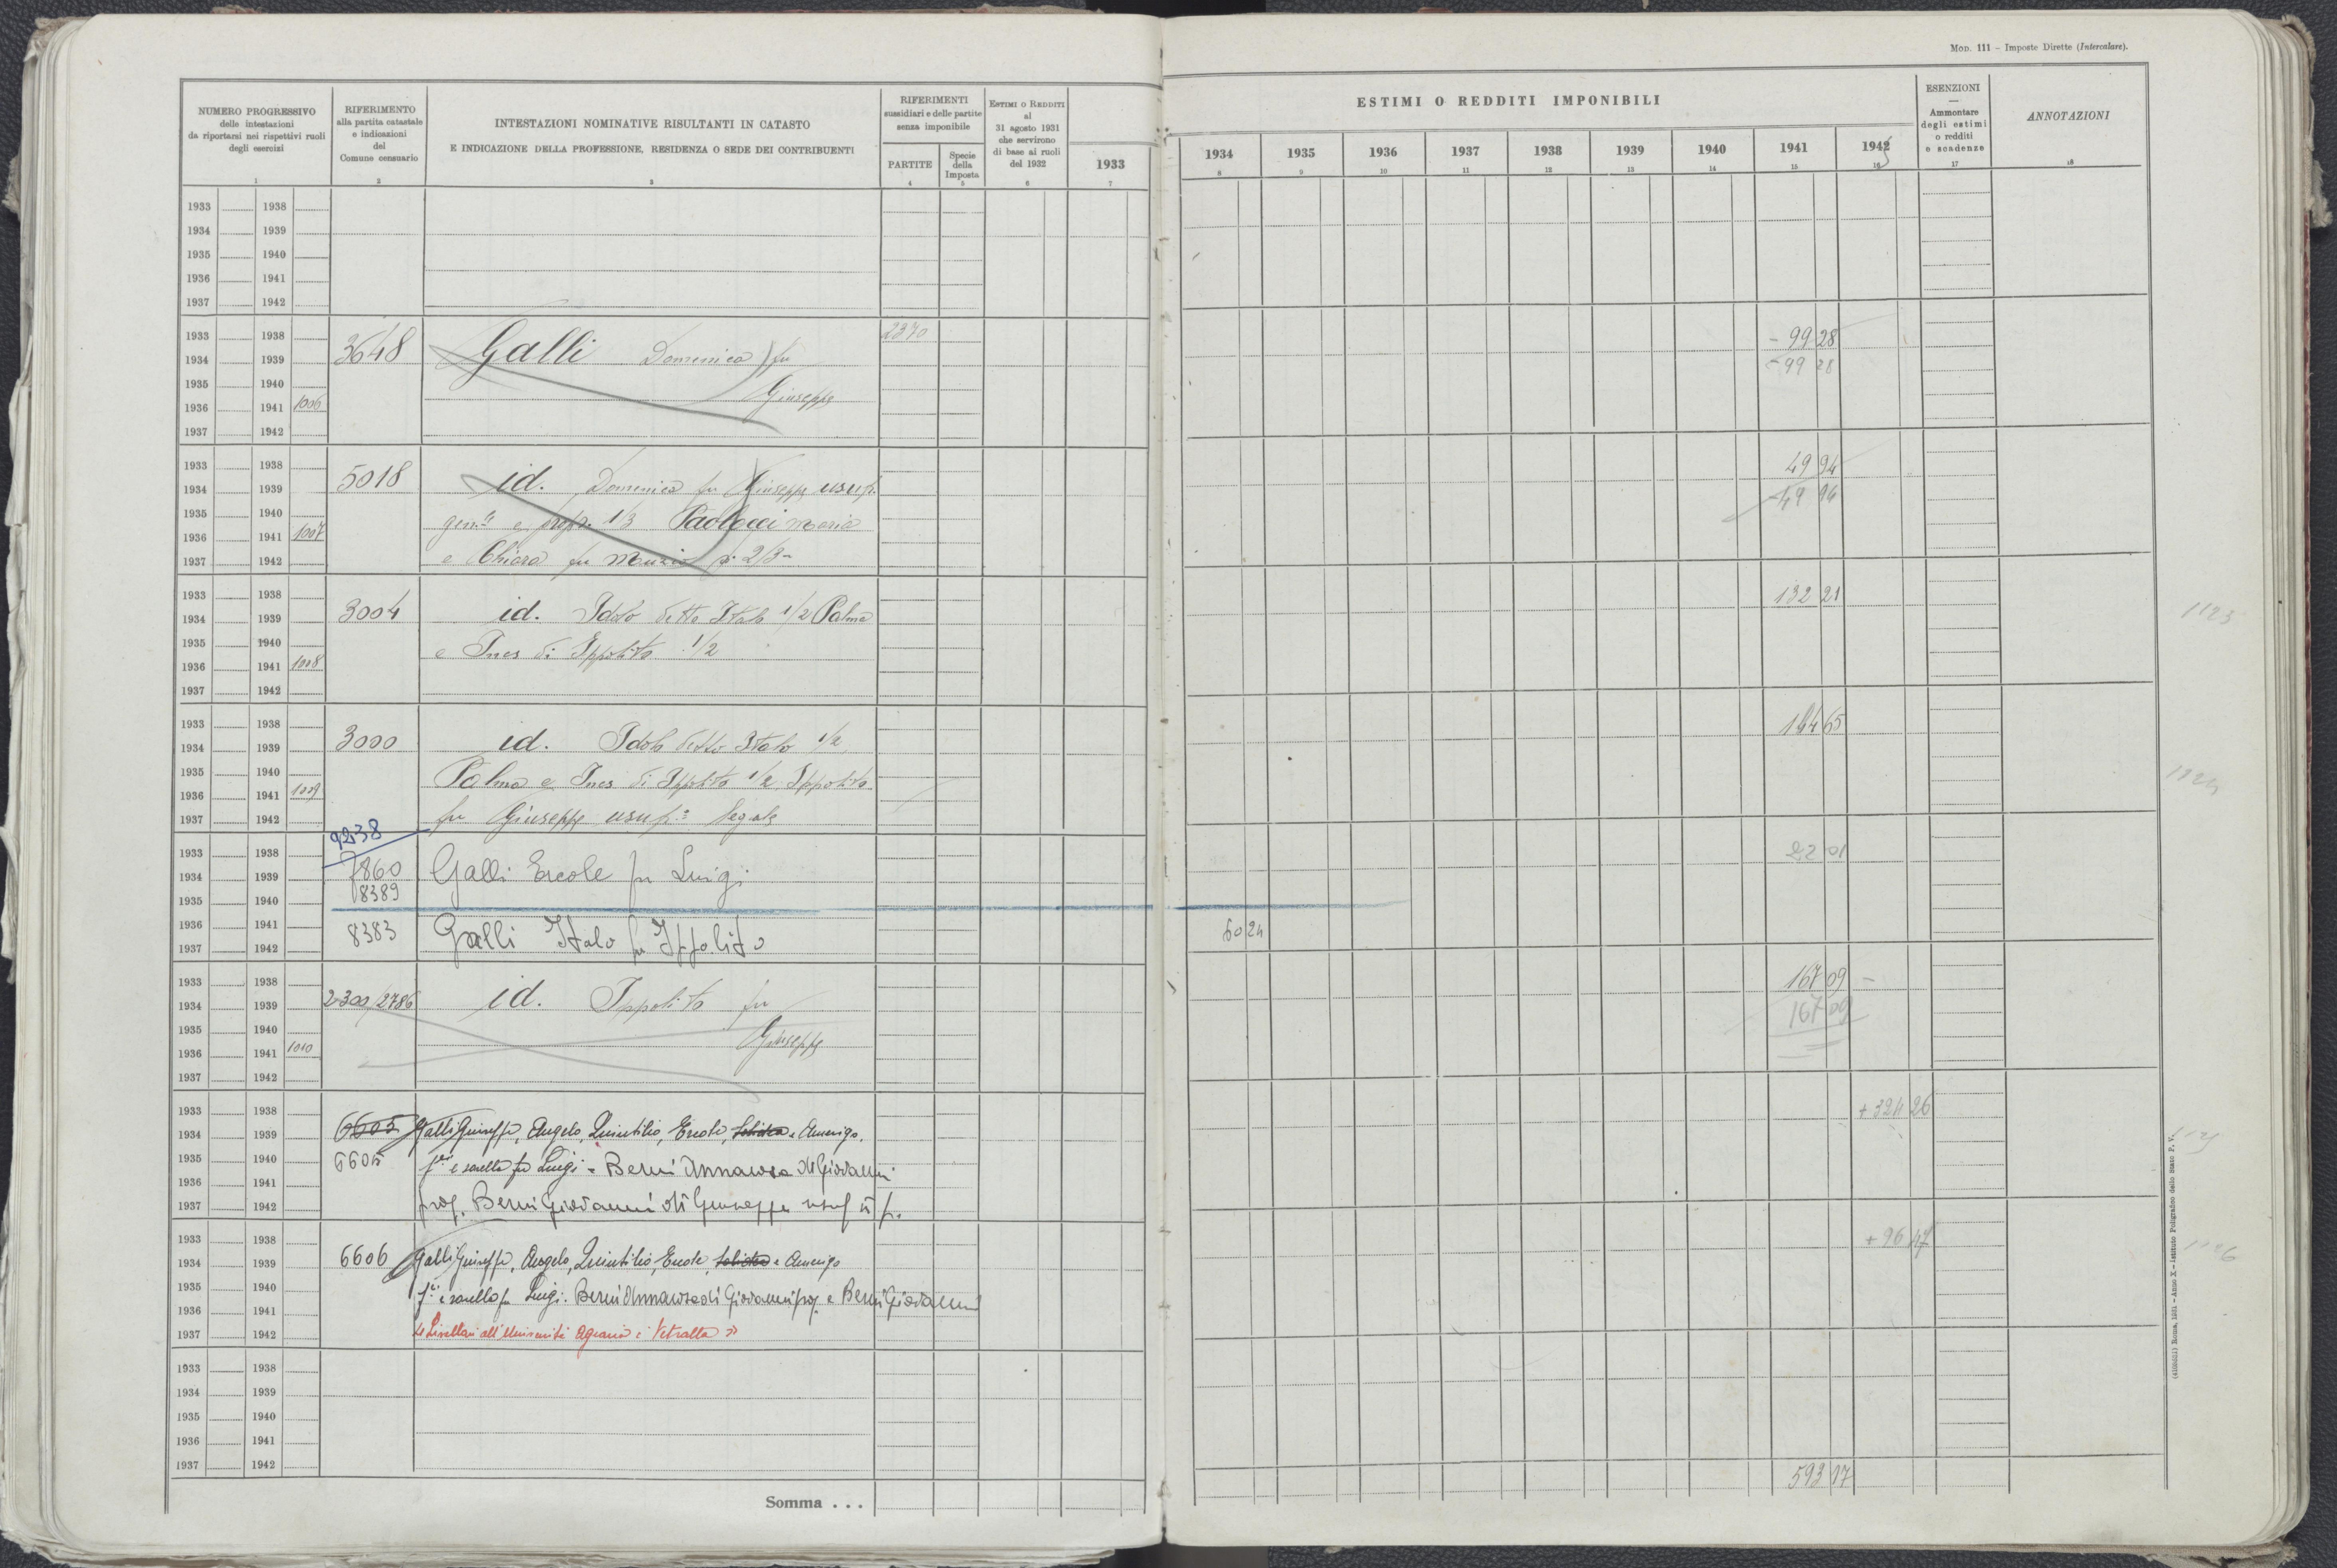 Mod. 111 – Imposte Dirette (Intercalare).
NUMERO PROGRESSIVO
delle intestazioni
da riportarsi nei rispettivi ruoli
degli esercizi
1
RIFERIMENTO
alla partita catastale
e indicazioni
del
Comune censuario
2
INTESTAZIONI NOMINATIVE RISULTANTI IN CATASTO
E INDICAZIONE DELLA PROFESSIONE, RESIDENZA O SEDE DEI CONTRIBUENTI
3
RIFERIMENTI
sussidiari e delle partite
senza imponibile
PARTITE
4
Specie
della
Imposta
5
Estimi o Redditi
al
31 agosto 1931
che servirono
di base ai ruoli
del 1932
6
ESTIMI O REDDITI IMPONIBILI
1933 1934 1935 1936 1937 1938 1939 1940 1941 1943
7 8 9 10 11 12 13 14 15 16
ESENZIONI
—
Ammontare
degli estimi
o redditi
e scadenze
17
ANNOTAZIONI
18
1933 1938
1934 1939
1935 1940
1936 1941
1937 1942
1933 1938 2370
1934 1939 3648 Galli Domenica fu - 99 28
1935 1940 Giuseppe - 99 28
1936 1941 1006
1937 1942
1933 1938 49 94
1934 1939 5018 id. Domenica fu Giuseppe usufr. - 49 94
1935 1940 gen.le e propr. 1/3 Paolocci Maria
1936 1941 1007
1937 1942 e Chiara fu Muzio p. 2/3 -
1933 1938 132 21
1934 1939 3004 id. Idolo detto Italo 1/2 Palma 1123
1935 1940 e Ines di Ippolito 1/2
1936 1941 1008
1937 1942
1933 1938 144 65
1934 1939 3000 id. Idolo detto Italo 1/2
1935 1940 Palma e Ines di Ippolito 1/2 Ippolito 1124
1936 1941 1009
1937 1942 fu Giuseppe usufr.o legale
9238
1933 1938 22 01
1934 1939 7860 Galli Ercole fu Luigi
1935 1940 8389
1936 1941 8383 Galli Italo fu Ippolito 60 24
1937 1942
1933 1938 167 09 -
1934 1939 2300/2786 id. Ippolito fu 167 09
1935 1940 Giuseppe
1936 1941 1010
1937 1942
1933 1938 + 324 26
1934 1939 6605 Galli Giuseppe, Angelo, Quintilio, Ercole, e Amerigo. 1125
1935 1940 6605 f.lli e sorella fu Luigi - Berni Annarosa di Giovanni
1936 1941
1937 1942 prop. Berni Giovanni di Giuseppe usuf
1933 1938 + 96 47
1934 1939 6606 Galli Giuseppe, Angelo, Quintilio, Ercole, e Amerigo 1126
1935 1940 f.lli e sorella fu Luigi. Berni Annarosa di Giovanni prop. e Berni Giovanni
1936 1941
1937 1942 Livellari all'Università Agraria di Vetralla »
1933 1938
1934 1939
1935 1940
1936 1941
1937 1942 593 17
Somma . . .
Roma, 1931 - Anno X - Istituto Poligrafico dello Stato P. V.